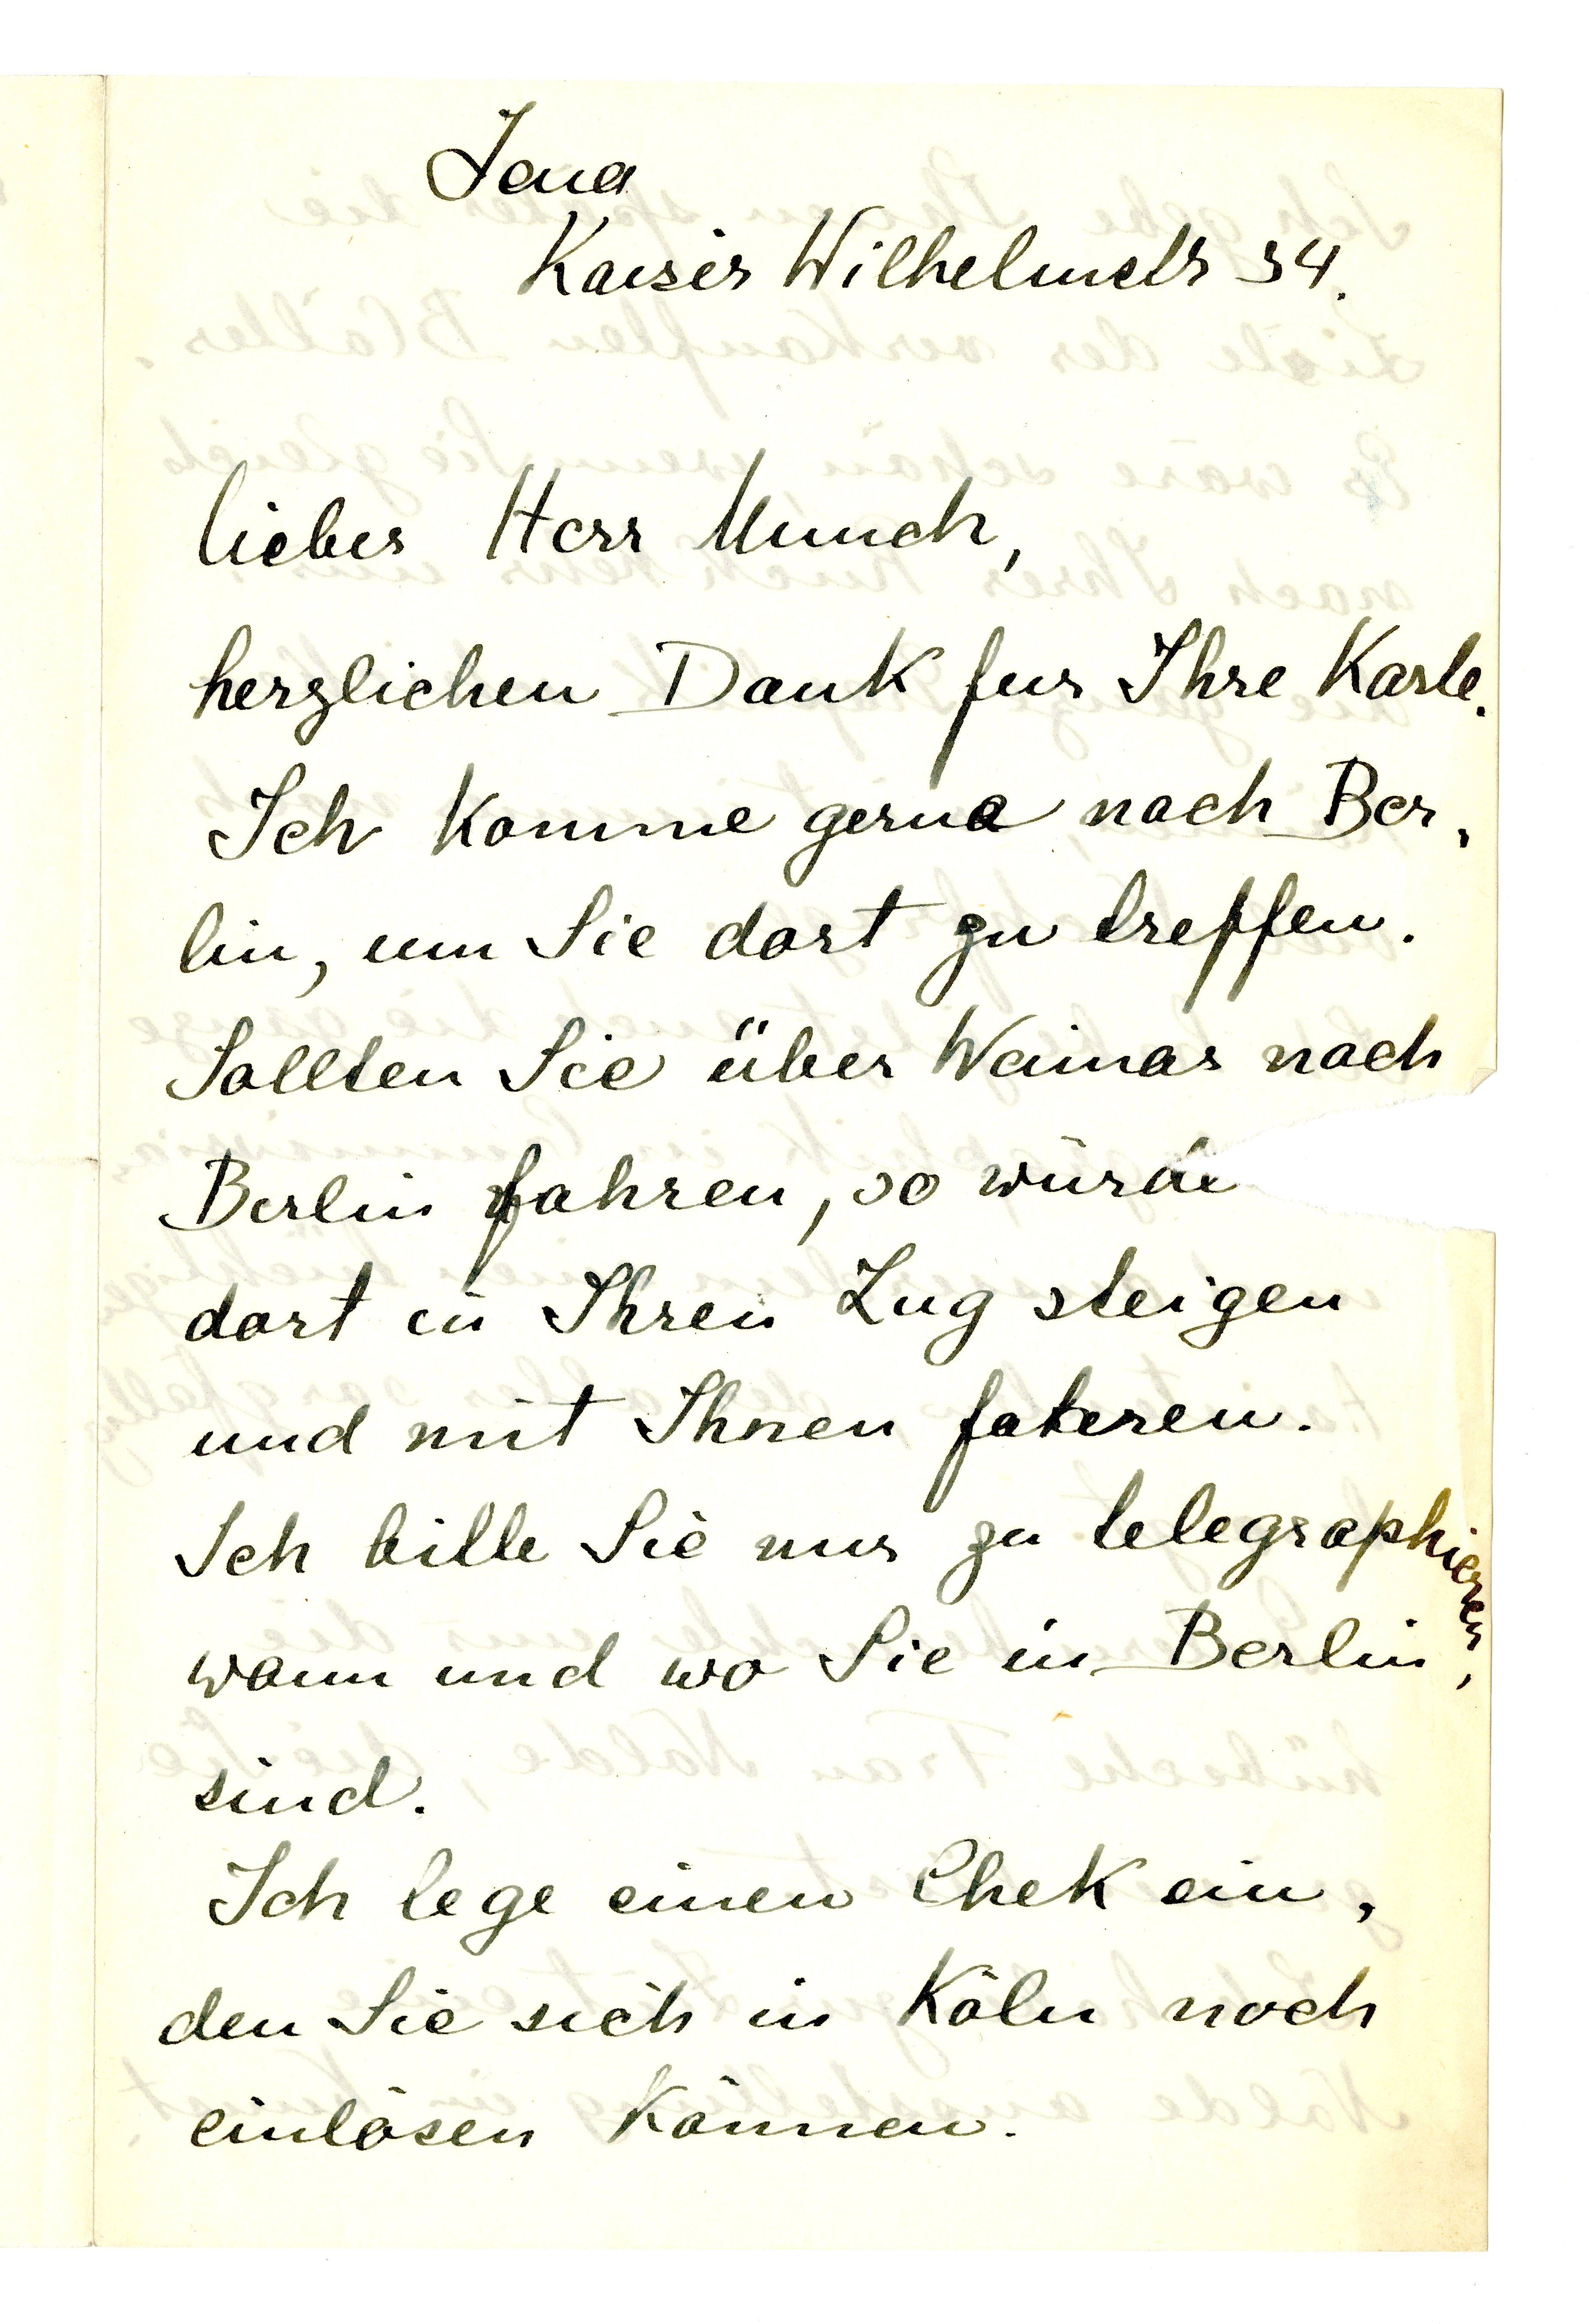 Jena
Kaiser Wilhelmstr 34.
lieber Herr Munch,
herzlichen Dank fur Ihre Karte.
Ich komme gerne nach Ber,
lin, um Sie dort zu treffen.
Sollten Sie über Weimar nach
Berlin fahren, so würde
dort in Ihren Zug steigen
und mit Ihnen fahren.
Ich bitte Sie nur zu telegraphieren,
wann und wo Sie in Berlin
sind.
Ich lege einen Chek ein,
den Sie sich in Köln noch
einlösen können.